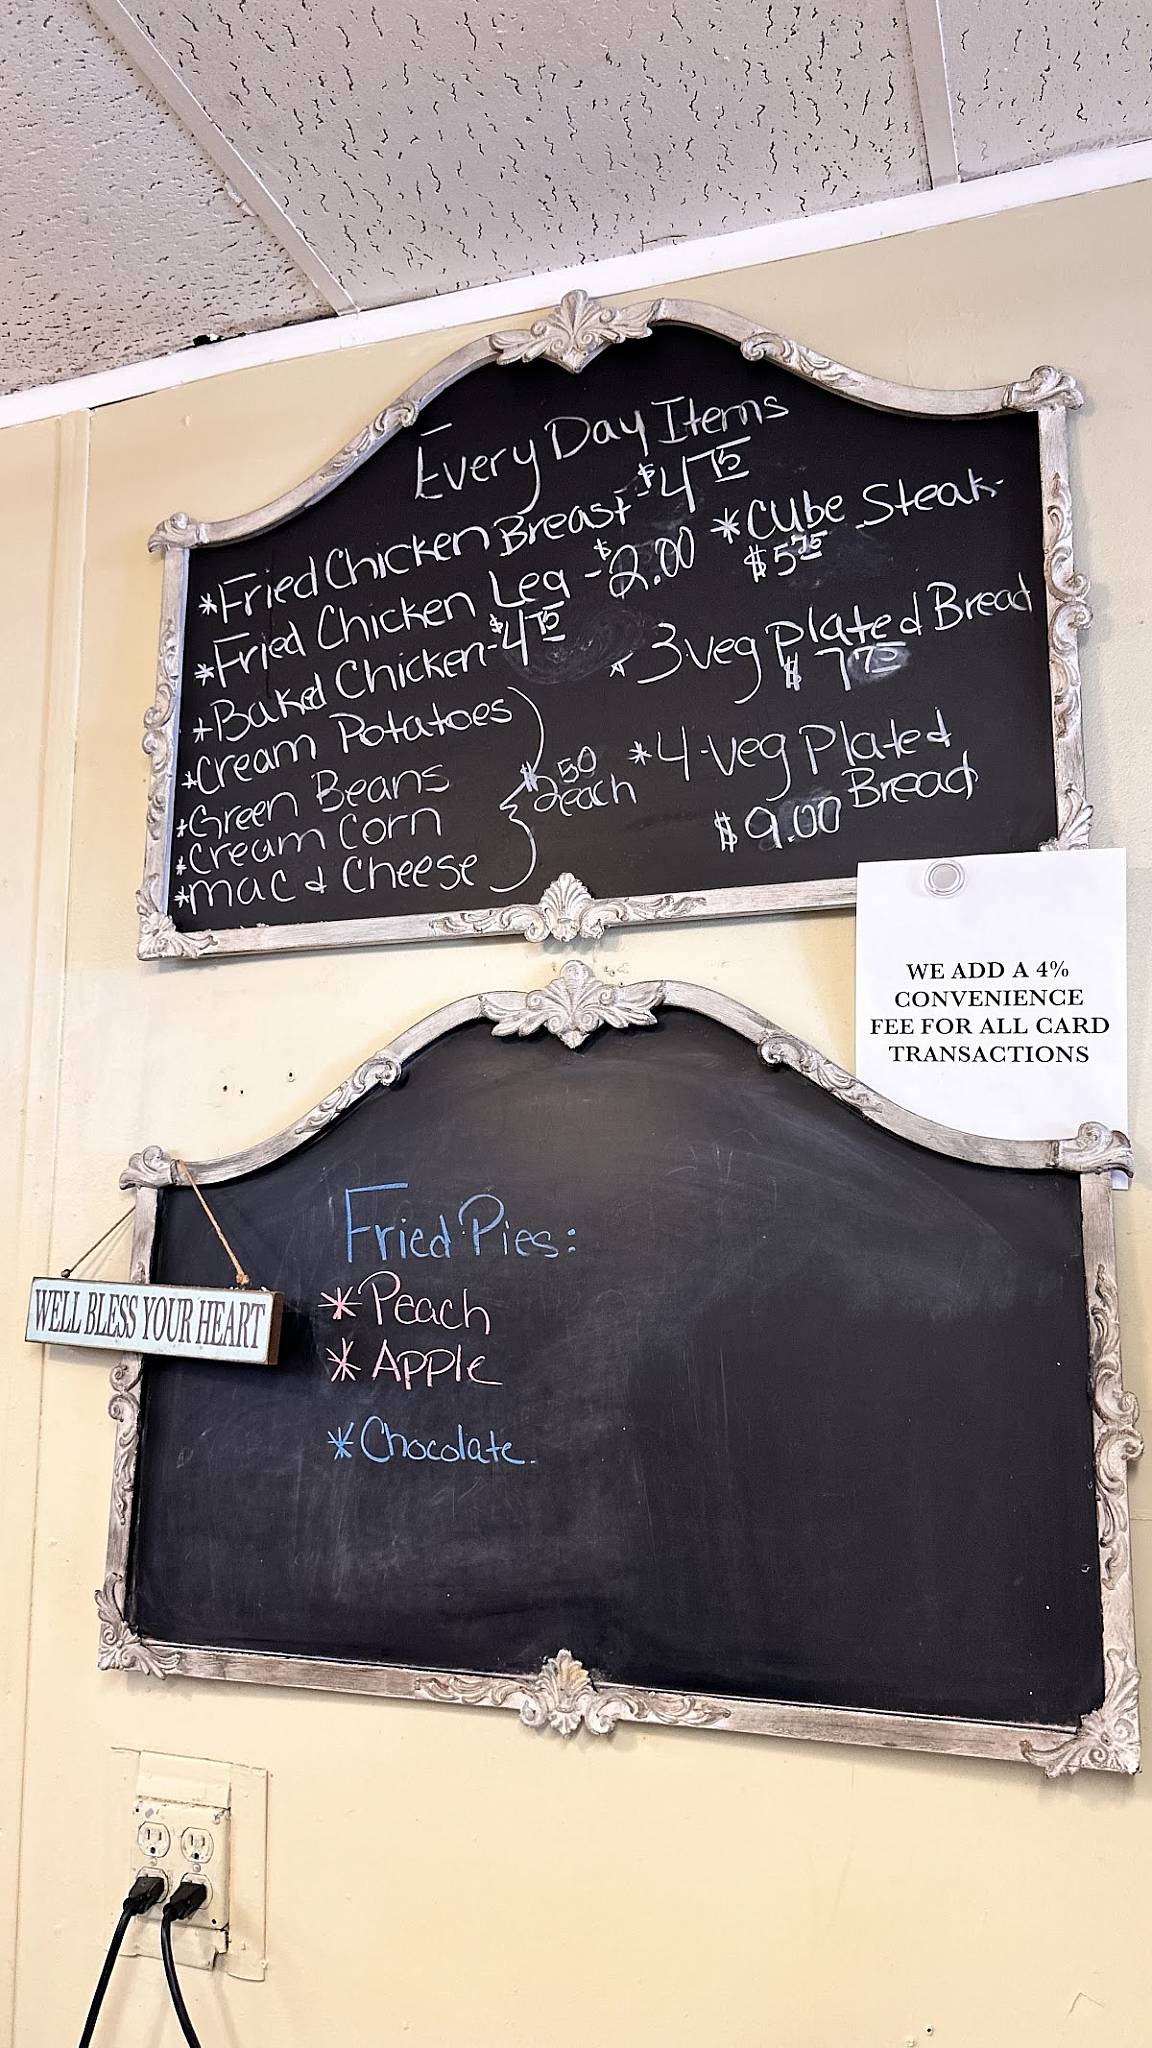 Every Day Items
*Fried Chicken Breast $4 75
*Fried Chicken Leg - $2.00
*Baked Chicken - $4 75
*Cream Potatoes
*Green Beans
*Cream Corn
*Mac & Cheese
$2 50
each
*Cube Steak-
$5 75
*3 veg Plate & Bread
$7 75
*4-veg Plate &
Bread
$9.00
WE ADD A 4%
CONVENIENCE
FEE FOR ALL CARD
TRANSACTIONS
Fried Pies:
*Peach
*Apple
*Chocolate
WELL BLESS YOUR HEART